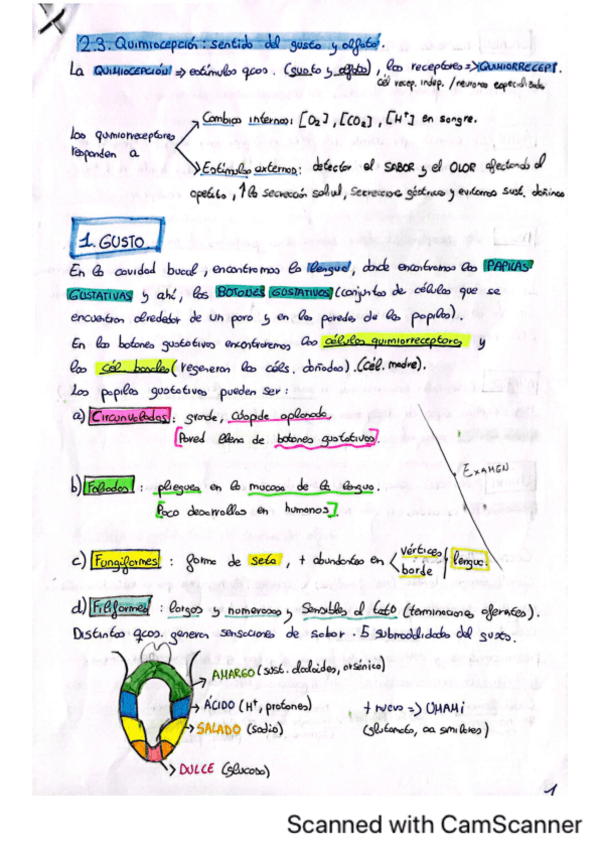 2.3. Quimiocepción: sentido del gusto y olfato.
La QUIMIOCEPCIÓN => estímulos qcos. (gusto y olfato), los receptores => QUIMIORRECEPT.
cél recep. indep. / neuronas especializadas
Cambios internos: [O2], [CO2], [H+] en sangre.
Los quimiorreceptores
responden a
Estímulos externos: detectar el SABOR y el OLOR afectando al
apetito, ↑ la secreción salival, secreciones gástricas y evitamos sust. dañinas
1. GUSTO
En la cavidad bucal, encontramos la lengua, donde encontramos las PAPILAS
GUSTATIVAS y ahí, los BOTONES GUSTATIVOS (conjuntos de células que se
encuentran alrededor de un poro y en las paredes de las papilas).
En los botones gustativos encontraremos las células quimiorreceptoras y
las cél. basales (regeneran las céls. dañadas). (cél. madre).
Las papilas gustativas pueden ser:
a) Circunvaladas: grande, cúspide aplanada.
[Pared llena de botones gustativos].
EXAMEN
b) Foliadas: pliegues en la mucosa de la lengua.
[Poco desarrolladas en humanos].
c) Fungiformes: forma de seta, + abundantes en < vértices / borde lengua.
d) Filiformes: largas y numerosas y sensibles al tacto (terminaciones aferentes).
Distintos qcos. generan sensaciones de sabor. 5 submodalidades del gusto.
AMARGO (sust. alcaloides, arsénico)
ÁCIDO (H+, protones)
+ nuevo => UMAMI
SALADO (sodio)
(glutamato, aa similares)
DULCE (glucosa)
1
Scanned with CamScanner